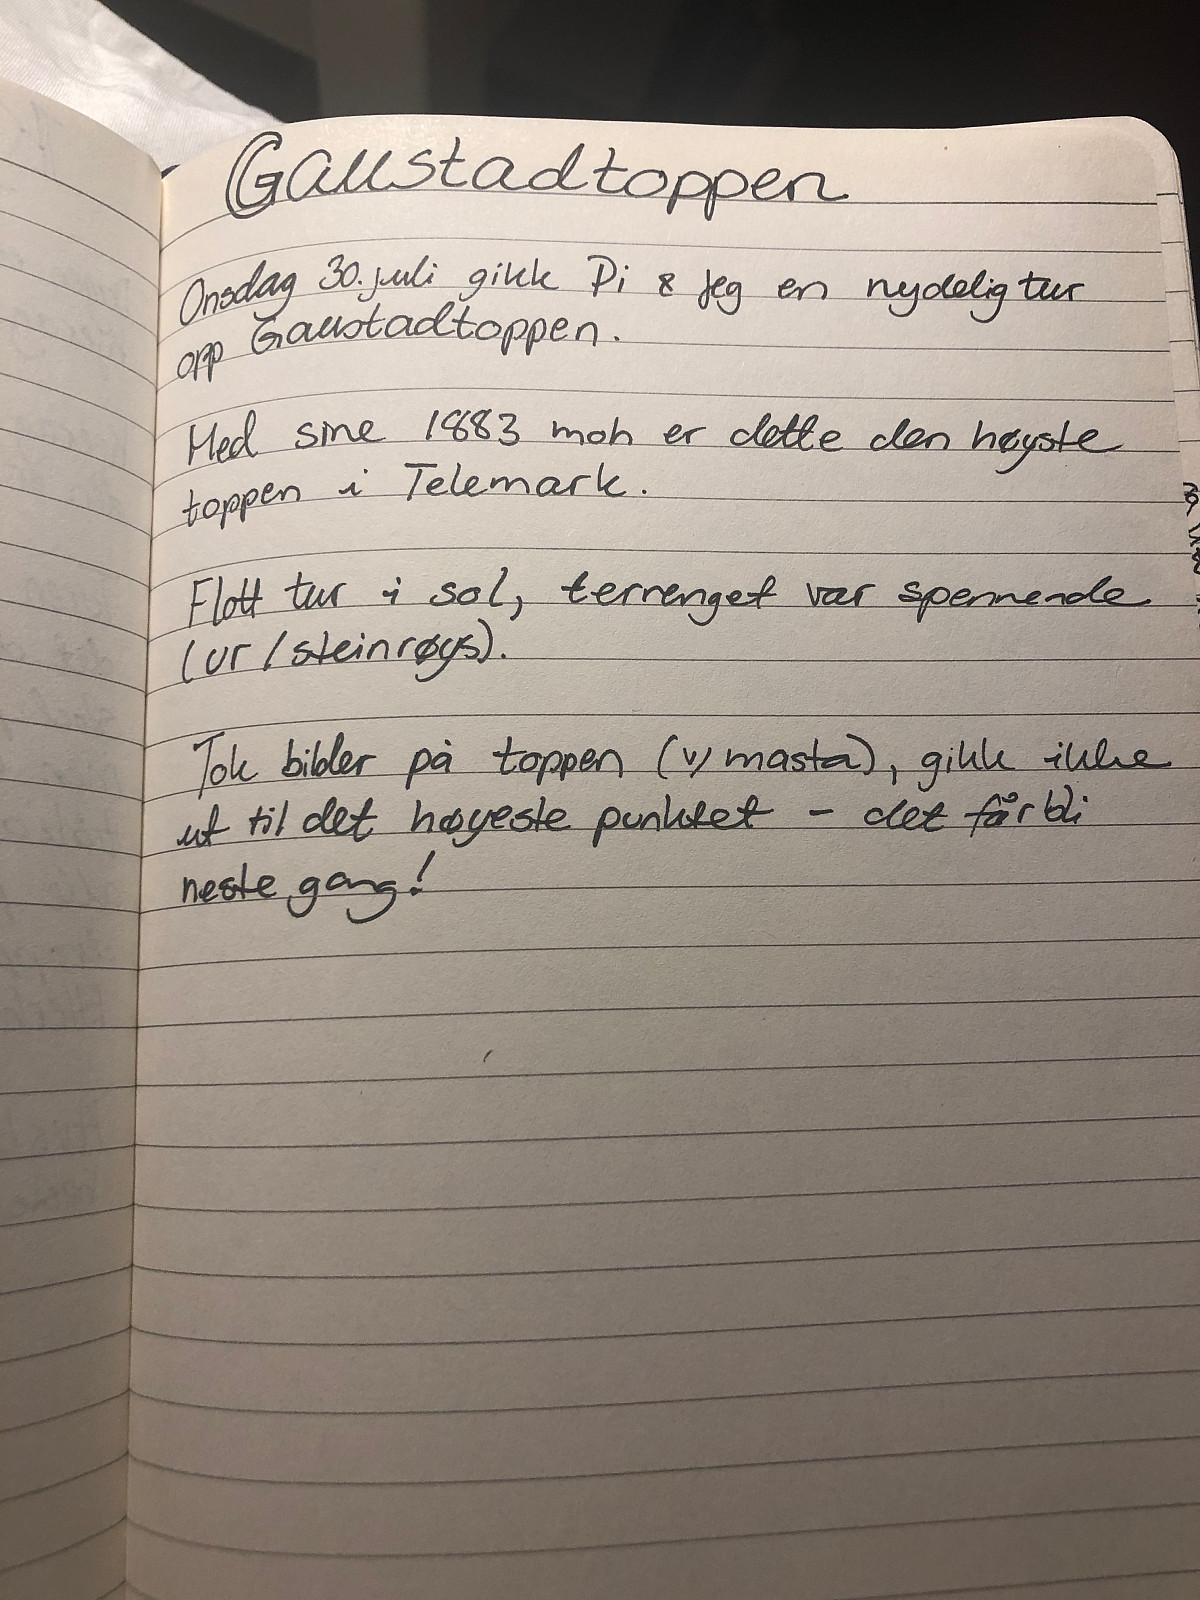 Gaustadtoppen
Onsdag 30. juli gikk Pi & jeg en nydelig tur
opp Gaustadtoppen.
Med sine 1883 moh er dette den høyste
toppen i Telemark.
Flott tur i sol, terrenget var spennende
(ur/steinrøys).
Tok bilder på toppen (v/masta), gikk ikke
ut til det høyeste punktet - det får bli
neste gang!